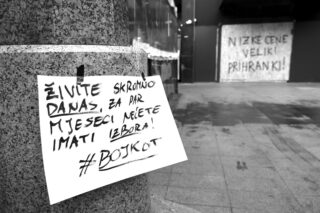 ŽIVITE SKROMNO
DANAS, ZA PAR
MJESECI NEĆETE
IMATI IZBORA!
#BOJKOT
NIZKE CENE
VELIKI
PRIHRANKI!